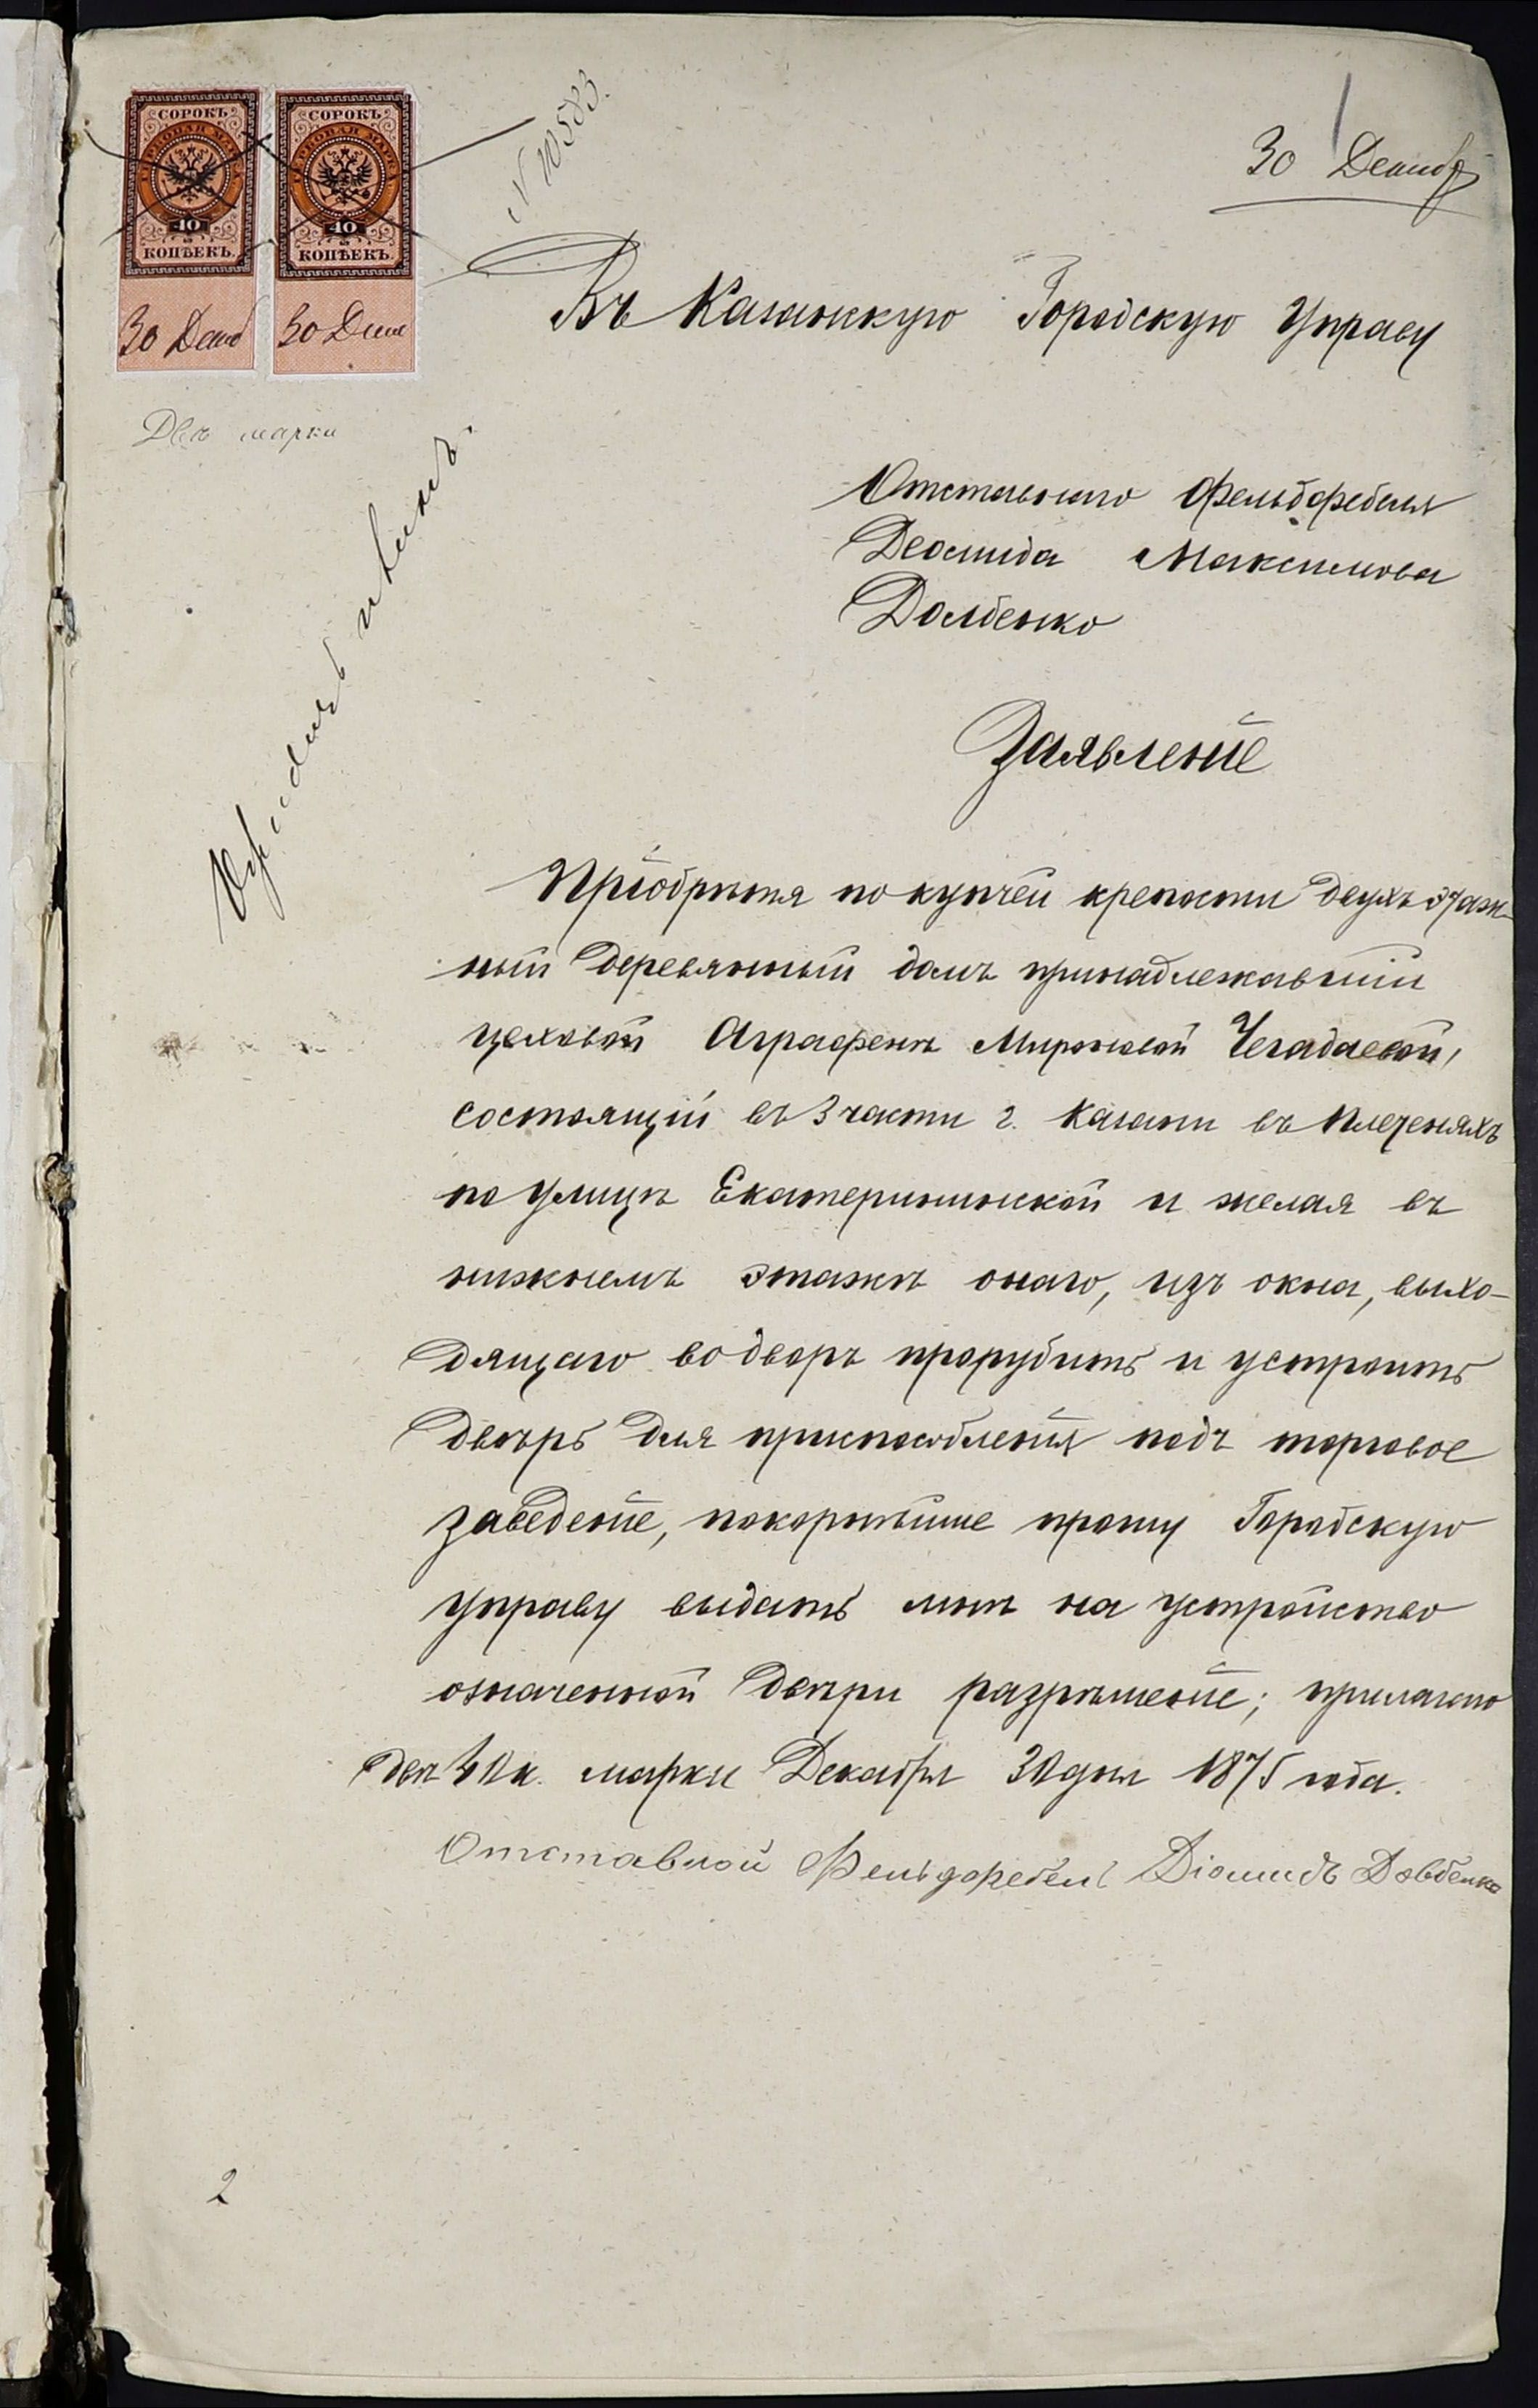 СОРОКЪ
ГЕРБОВАЯ МАРКА
40
КОПѢЕКЪ.
30 Декаб
СОРОКЪ
ГЕРБОВАЯ МАРКА
40
КОПѢЕКЪ.
30 Дека
Двѣ марки
N 10583.
30 Декабр
Въ Казанскую Городскую Управу
Отставнаго Фельдфебеля
Деомида Максимова
Долбенко
Заявленіе
Пріобрѣтя по купчей крепости двухъ этаж-
ный деревянный домъ принадлежавшій
цеховой Аграфенѣ Мироновой Чегадаевой,
состоящій въ 3 части г. Казани въ Плетеняхъ
по улицѣ Екатерининской и желая въ
нижнемъ этажѣ онаго, изъ окна, выхо-
дящаго во дворъ прорубить и устроить
дверь для приспособленія подъ торговое
заведеніе, покорнѣйше прошу Городскую
управу выдать мнѣ на устройство
означенной двѣри разрѣшеніе; прилагаю
двѣ 40 к. марки Декабря 30 дня 1875 года.
Отставной Фельдфебель Діомидъ Довбенко
2